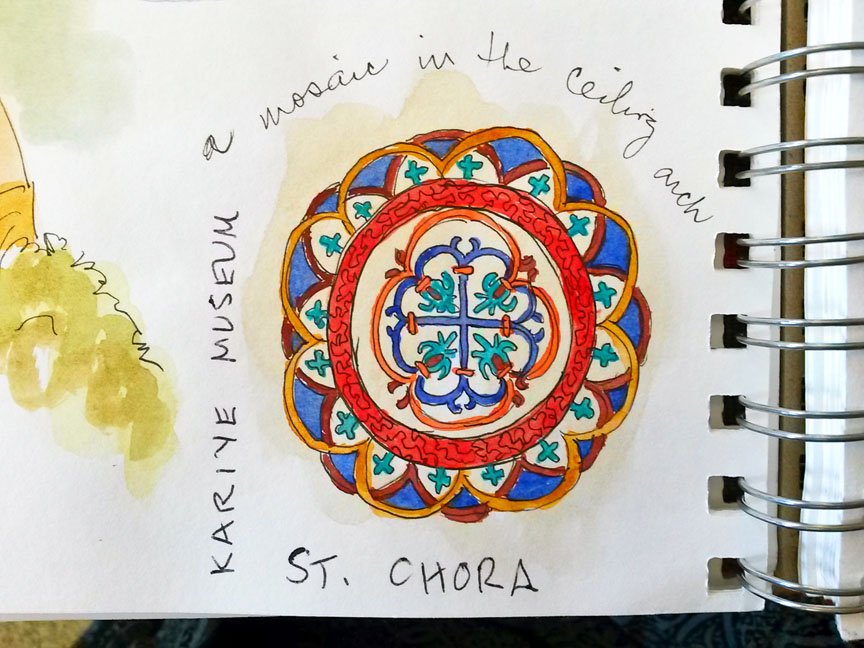 a mosaic in the ceiling arch
KARIYE MUSEUM
ST. CHORA